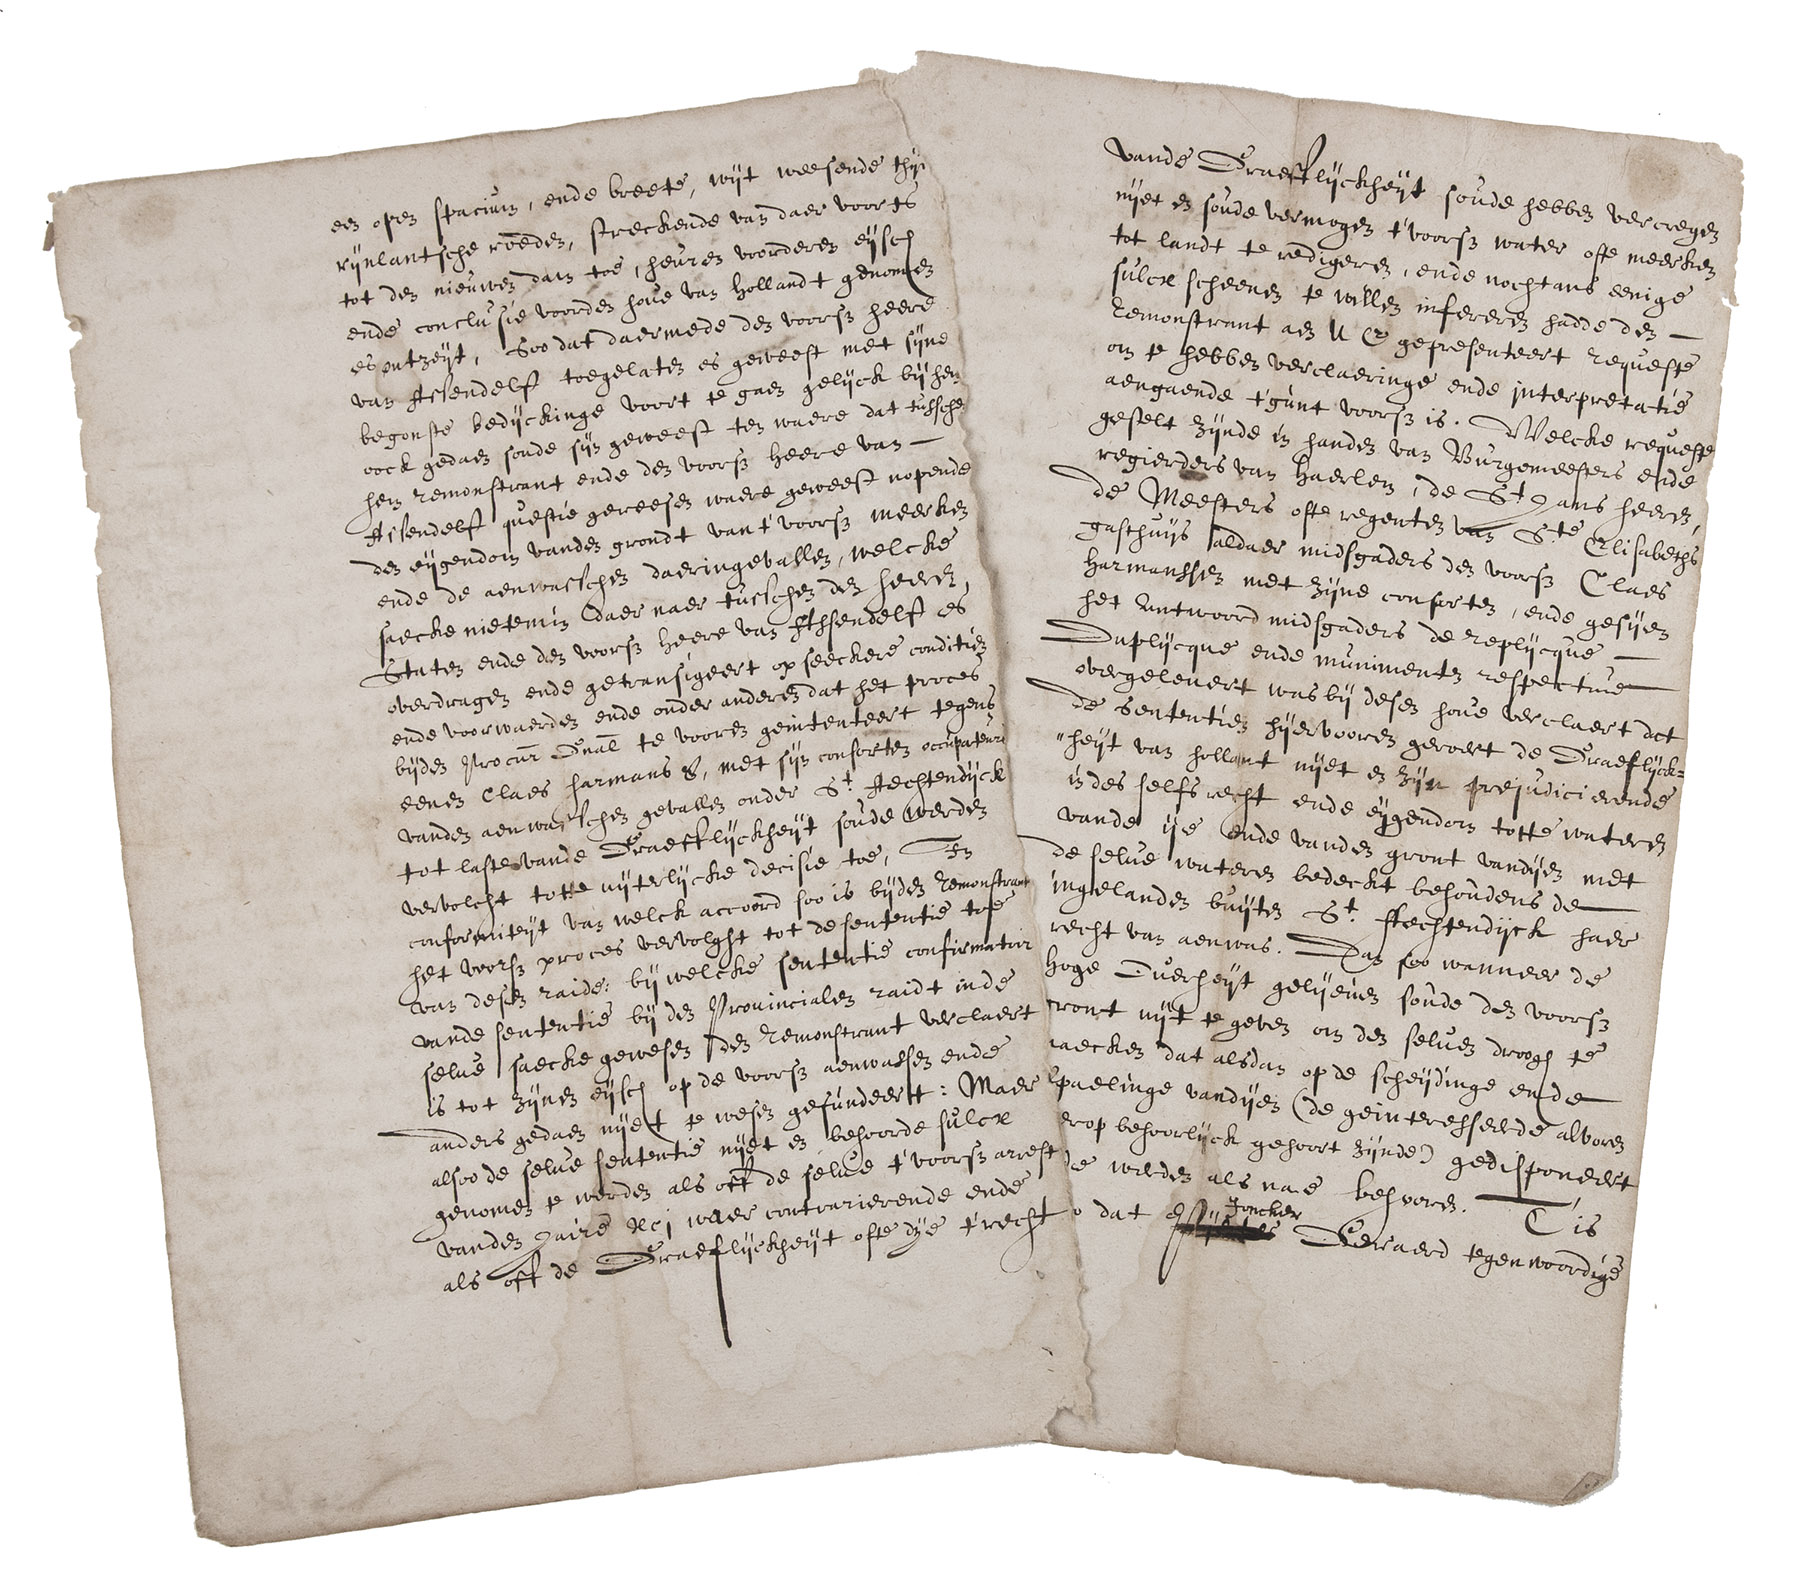 een open spacium, ende breete, wijt weesende thijn
rijnlantsche roeden, streckende van daer voorts
tot den nieuwen dam toe, heuren voorderen eijsch
ende conclusie voorden hove van Hollandt genomen
es ontzeijt, Soo dat daermede den voorsz heere
van Assendelft toegelaten es geweest met sijne
begonste bedijckinge voort te gaen gelijck bij hem
oock gedaen soude sijn geweest ten waere dat tussche
hem Remonstrant ende den voorsz heere van
Assendelft questie geresen waere geweest nopende
den eijgendom vanden grondt van t'voorsz meerken
ende de aenwasschen daeringevallen, welcke
saecke nietemin daer naer tusschen den heeren,
Staten ende den voorsz heere van Assendelft es
overdragen ende getransigeert op seeckere conditien
ende voorwaerden ende onder anderen dat het proces
bijden Procur Gnael te vooren geintenteert tegens
eenen Claes Harmans S, met sijn consorten occupateurs
vanden aenwasschen gevallen onder St. Aechtendijck
tot laste vande Graefflijckheijt soude werden
vervolcht totte uijterlijcke decisie toe, In
conformiteijt van welck accoord soo is bijden Remonstrant
het voorsz proces vervolght tot de sententie toe
van desen raide: bij welcke sententie confirmatoir
vande sententie bij den Provincialen raidt inde
selve saecke gewesen den Remonstrant verclaert
is tot zijnen eijsch op de voorsz aenwassen ende
anders gedaen nijet te wesen gefundeert: Maer
alsoo de selve sententie nijet en behoorde sulcx
genomen te werden als off de selve t'voorsz arrest
vanden Jaire xcj waer contrarierende ende
als off de Graeflijckheijt ofte dije t'recht
vande Graeflijckheijt soude hebben vercregen
nijet en soude vermogen t'voorsz water ofte meerken
tot landt te redigeren, ende nochtans eenige
sulcx scheenen te willen infereren hadde den
Remonstrant aen U E gepresenteert requeste
om te hebben verclaeringe ende interpretatie
aengaende t'gunt voorsz is. Welcke requeste
gestelt zijnde in handen van Burgemeesters ende
regierders van Haerlem, de St Jans heeren,
de Meesters ofte regenten van Ste Elisabeths
gasthuijs aldaer midsgaders den voorsz Claes
Harmanssen met zijne consorten, ende gesijen
het Antwoord midsgaders de replijcque
Duplijcque ende munimenten respective
overgelevert was bij desen hove verclaert dat
de sententien hijervooren geroert de Graeflijck=
"heijt van hollant nijet en zijn prejudicierende
in des selfs recht ende eijgendom totte wateren
vande ije ende vanden gront vandijen met
de selve wateren bedeckt behoudens de
ingelanden buijten St. Aechtendijck haer
recht van aenwas. Dan soo wanneer de
hoge Overheijt gelieven soude den voorsz
ront uijt te geven om den selven droogh te
aecken dat alsdan op de scheijdinge ende
epaelinge vandijen (de geinteresseerde alvoren
erop behoorlijck gehoort zijnde) gedisponeert
de werden als nae behooren. T'is
o dat Joncker Geraerd tegenwoordige